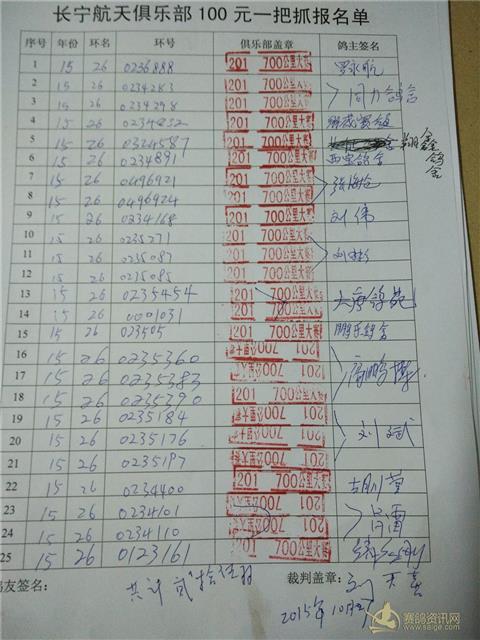 长宁航天俱乐部 100 元一把抓报名单
序号 年份 环名 环号 俱乐部盖章 鸽主签名
1 15 26 0236888 201 700公里大赛 罗永航
2 15 26 0234283 201 700公里大赛
3 15 26 0234298 201 700公里大赛
4 15 26 201 700公里大赛
5 15 26 0324587 201 700公里大赛
6 15 26 0234891 201 700公里大赛
7 15 26 0496921 201 700公里大赛
8 15 26 0496924 201 700公里大赛
9 15 26 0234168 201 700公里大赛 刘伟
10 15 26 0235271 201 700公里大赛
11 15 26 0235087 201 700公里大赛
12 15 26 0235085 201 700公里大赛
13 15 26 0235454 201 700公里大赛
14 15 26 0001031 201 700公里大赛
15 15 26 023505 201 700公里大赛
16 15 26 0235360 201 700公里大赛
17 15 26 0235383 201 700公里大赛
18 15 26 0235390 201 700公里大赛
19 15 26 0235184 201 700公里大赛
20 15 26 0235176 201 700公里大赛 刘斌
21 15 26 0235197 201 700公里大赛
22 15 26 0234400 201 700公里大赛
23 15 26 0234101 201 700公里大赛
24 15 26 0234110 201 700公里大赛 肖雷
25 15 26 0123161 201 700公里大赛
鸽友签名： 共计贰拾伍羽 裁判盖章：
2015年10月
赛鸽资讯网
www.saige.com